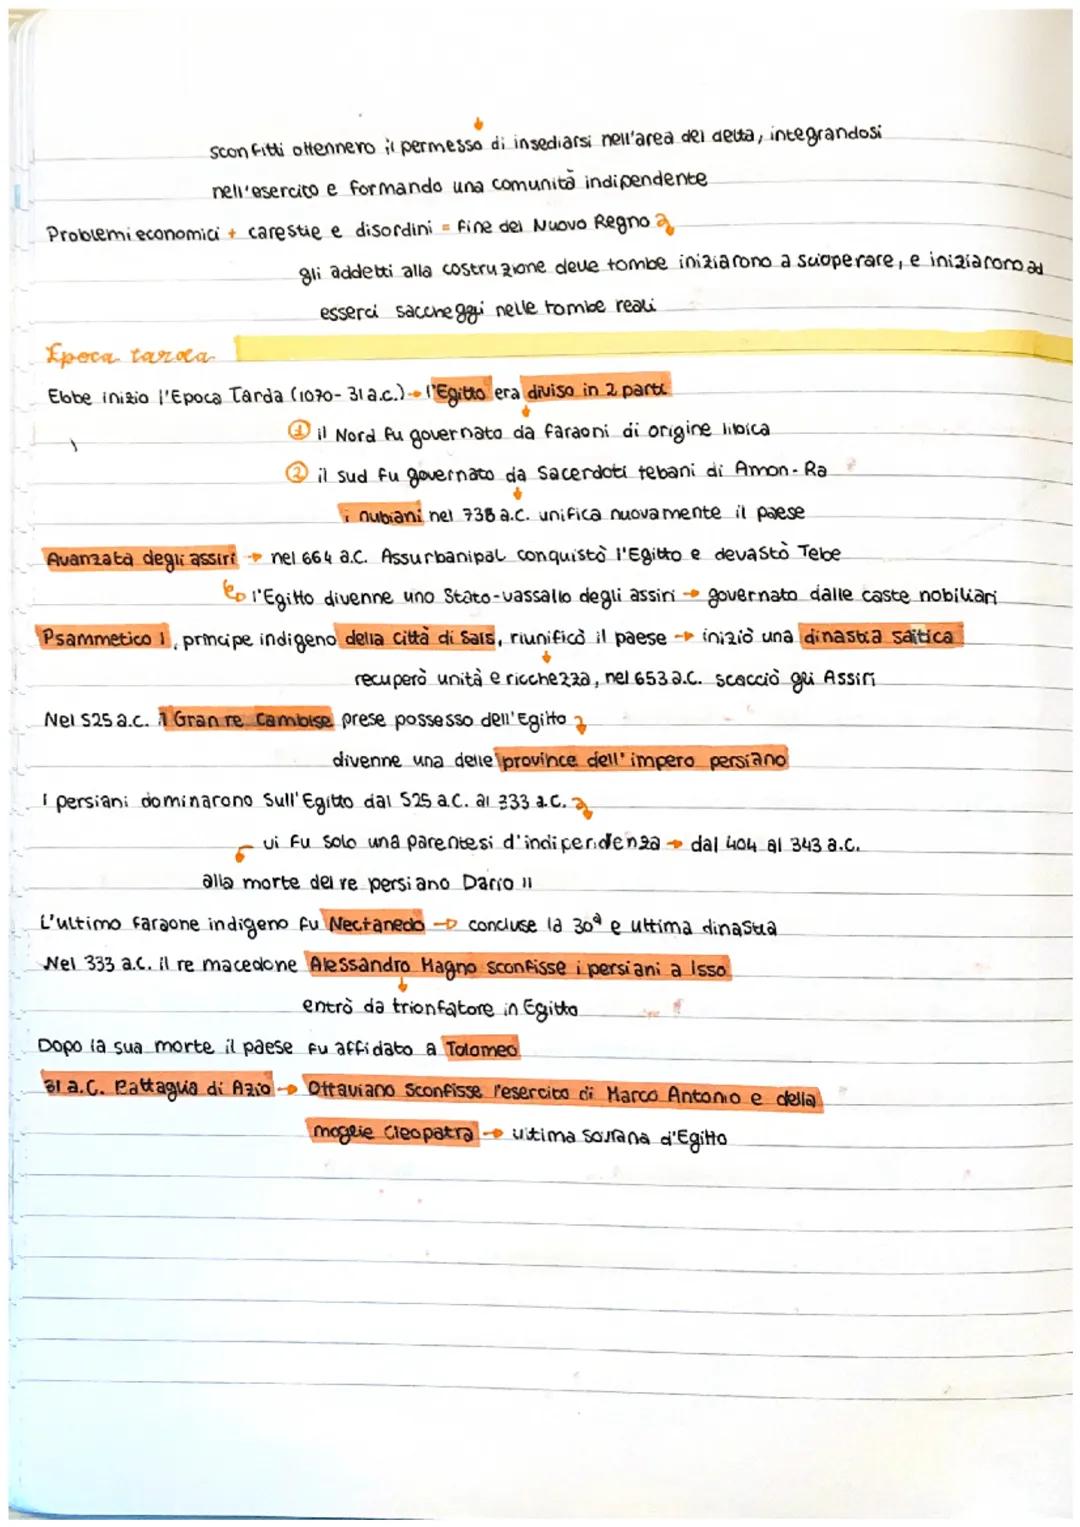 ↓
sconfitti ottennero il permesso di insediarsi nell'area del delta, integrandosi
nell'esercito e formando una comunità indipendente
Problemi economici + carestie e disordini = fine del Nuovo Regno
gli addetti alla costruzione delle tombe iniziarono a scioperare, e iniziarono ad
esserci saccheggi nelle tombe reali
Epoca tarda
Ebbe inizio l'Epoca Tarda (1070-31 a.c.) → l'Egitto era diviso in 2 parti
① il Nord fu governato da faraoni di origine libica
② il sud fu governato da Sacerdoti tebani di Amon-Ra
i nubiani nel 738 a.C. unifica nuovamente il paese
Avanzata degli assiri → nel 664 a.C. Assurbanipal conquistò l'Egitto e devastò Tebe
↳ l'Egitto divenne uno Stato-vassallo degli assiri → governato dalle caste nobiliari
Psammetico I, principe indigeno della città di Sais, riunificò il paese → iniziò una dinastia saitica
recuperò unità e ricchezza, nel 653 a.C. scacciò gli Assiri
Nel 525 a.c. il Gran re Cambise prese possesso dell'Egitto
divenne una delle province dell'impero persiano
I persiani dominarono sull'Egitto dal 525 a.C. al 333 a.C.
vi fu solo una parentesi d'indipendenza → dal 404 al 343 a.C.
alla morte del re persiano Dario II
L'ultimo faraone indigeno fu Nectanedo → concluse la 30ª e ultima dinastia
Nel 333 a.C. il re macedone Alessandro Magno sconfisse i persiani a Isso
entrò da trionfatore in Egitto
Dopo la sua morte il paese fu affidato a Tolomeo
31 a.C. Battaglia di Azio → Ottaviano sconfisse l'esercito di Marco Antonio e della
moglie Cleopatra → ultima sovrana d'Egitto